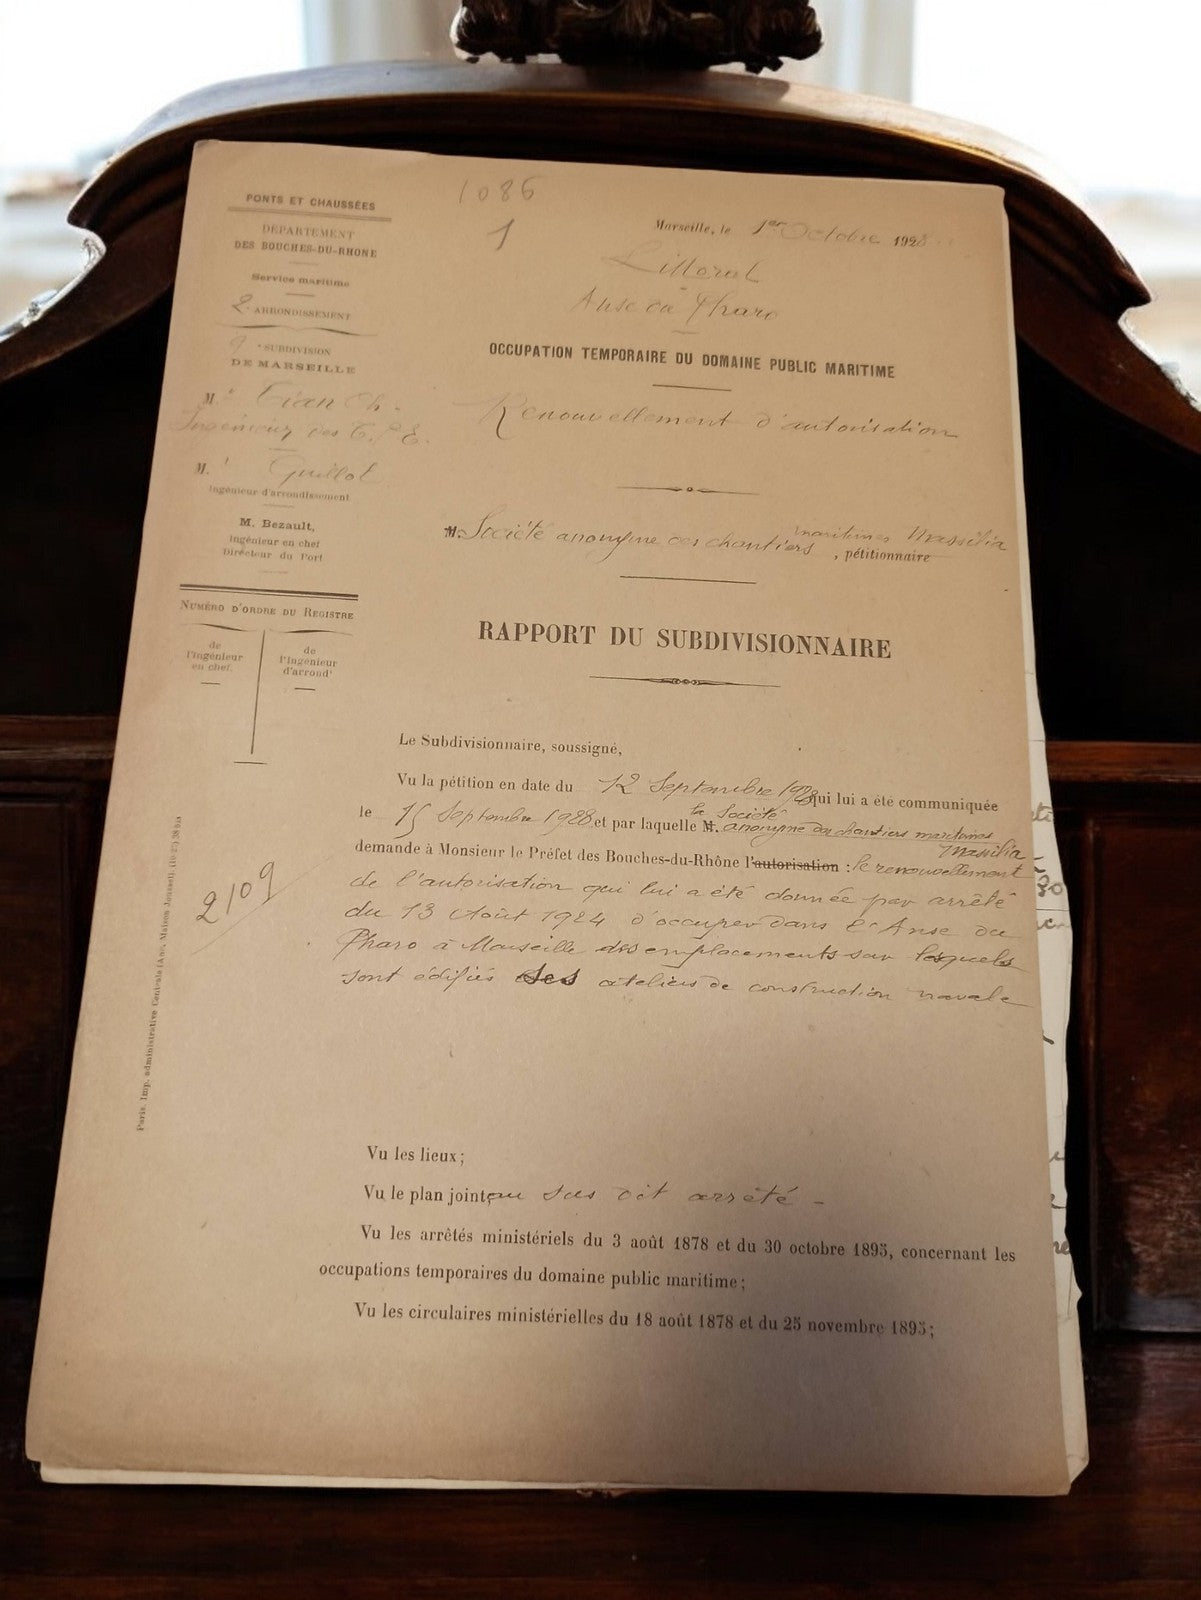 1086
1
PONTS ET CHAUSSÉES
DÉPARTEMENT
DES BOUCHES-DU-RHONE
Service maritime
2e ARRONDISSEMENT
SUBDIVISION
DE MARSEILLE
M.
Ingénieur des T.P.E.
M. Guillot
Ingénieur d'arrondissement
M. Bezault,
Ingénieur en chef
Directeur du Port
NUMÉRO D'ORDRE DU REGISTRE
de l'ingénieur en chef.
de l'ingénieur d'arrondt
Marseille, le 1er Octobre 1928
Littoral
Anse du Pharo
OCCUPATION TEMPORAIRE DU DOMAINE PUBLIC MARITIME
Renouvellement d'autorisation
M. Société anonyme des chantiers maritimes Massilia, pétitionnaire
RAPPORT DU SUBDIVISIONNAIRE
Le Subdivisionnaire, soussigné,
Vu la pétition en date du 12 Septembre 1928 qui lui a été communiquée
le 15 Septembre 1928 et par laquelle M. la Société anonyme des chantiers maritimes Massilia
demande à Monsieur le Préfet des Bouches-du-Rhône l'autorisation : le renouvellement
de l'autorisation qui lui a été donnée par arrêté
du 13 Août 1924 d'occuper dans l'Anse du
Pharo à Marseille des emplacements sur lesquels
sont édifiés ses ateliers de construction navale
2109
Vu les lieux;
Vu le plan joint au sus dit arrêté -
Vu les arrêtés ministériels du 3 août 1878 et du 30 octobre 1895, concernant les
occupations temporaires du domaine public maritime;
Vu les circulaires ministérielles du 18 août 1878 et du 25 novembre 1895;
Paris. Imp. administrative Centrale (Anc. Maison Jousset).